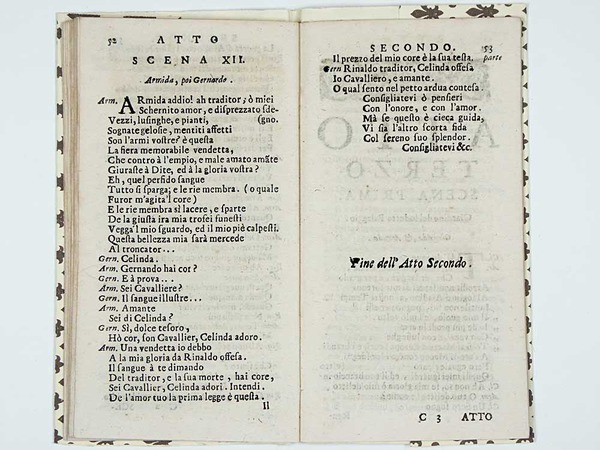 52 ATTO
SCENA XII.
Armida, poi Gernando.
Arm. ARmida addio! ah traditor; ò miei
Schernito amor, e disprezzato sde-
Vezzi, lusinghe, e pianti, (gno.
Sognate gelosie, mentiti affetti
Son l'armi vostre? è questa
La fiera memorabile vendetta,
Che contro à l'empio, e male amato amāte
Giuraste à Dite, ed à la gloria vostra?
Eh, quel perfido sangue
Tutto si sparga; e le rie membra. (o quale
Furor m'agita'l core)
E le rie membra sì lacere, e sparte
De la giusta ira mia trofei funesti
Vegga'l mio sguardo, ed il mio piè calpesti.
Questa bellezza mia sarà mercede
Al troncator...
Gern. Celinda.
Arm. Gernando hai cor?
Gern. E à prova...
Arm. Sei Cavalliere?
Gern. Il sangue illustre...
Arm. Amante
Sei di Celinda?
Gern. Sì, dolce tesoro,
Hò cor, son Cavallier, Celinda adoro.
Arm. Una vendetta io debbo
A la mia gloria da Rinaldo offesa.
Il sangue à te dimando
Del traditor, e la sua morte, hai core,
Sei Cavallier, Celinda adori. Intendi.
De l'amor tuo la prima legge è questa.
Il
SECONDO. 53
Il prezzo del mio core è la sua testa. parte
Gern Rinaldo traditor, Celinda offesa
Io Cavalliero, e amante.
O qual sento nel petto ardua contesa.
Consigliatevi ò pensieri
Con l'onore, e con l'amor.
Mà se questo è cieca guida,
Vi sia l'altro scorta fida
Col sereno suo splendor.
Consigliatevi &c.
Fine dell'Atto Secondo.
C 3 ATTO